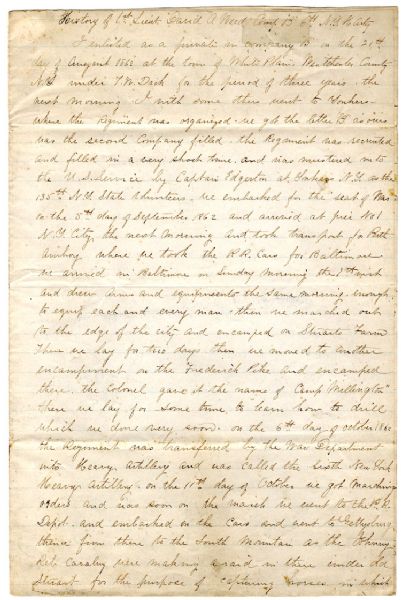 History of 1st Lieut David A Weed Co B 6th N.Y. H. Art
I enlisted as a private in company B on the 21st
day of August 1862 at the town of White Plains Westchester County
N.Y. under T.W. Dash for the period of three years the
next morning I with some others went to Yonkers
where the Regiment was organized. we got the letter B as ours
was the second Company filled. the Regiment was recruited
and filled in a very short time. and was mustered into
the U.S. Service by Captain Edgerton at Yonkers N.Y. as the
135th N.Y. State Volunteers. we embarked for the seat of War
on the 5th day of September 1862 and arrived at pier No 1
N.Y. City, the next Morning and took transport for
Amboy, where we took the R.R. Cars for Baltimore
we arrived in Baltimore on Sunday Morning the 7th inst
and drew Arms and equipments the same morning, enough
to equip each and every man. then we marched out
to the edge of the city and encamped on Stuarts Farm
There we lay for two days then we moved to another
encampment on the Frederick Pike and encamped
there. the Colonel gave it the name of Camp Wellington"
there we lay for some time to learn how to drill
which we done very soon. on the 6th day of october 1862
the Regiment was transferred by the War Department
into Heavy Artillery and was called the Sixth New York
Heavy Artillery. on the 11th day of October we got marching
orders and was soon on the march we went to the R. R.
Depot. and embarked on the Cars and went to Gettysburg
thence from there to the South Mountain as the Johnny
Reb Cavalry were making a raid in there under
Stuart for the purpose of capturing horses in which